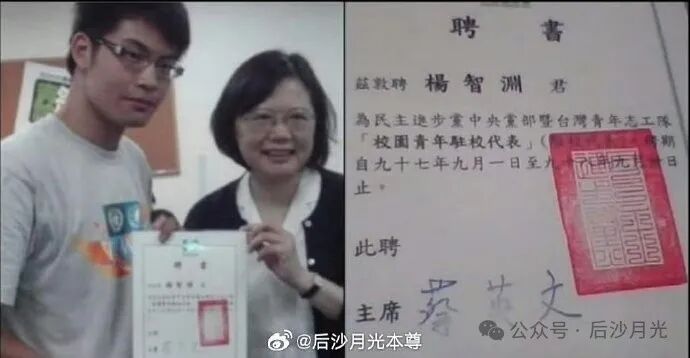 聘書
茲敦聘 楊智淵 君
為民主進步黨中央黨部暨台灣青年志工隊
「校園青年駐校代表」
自九十七年九月一日至九十八年九月
止。
此聘
主席 蔡英文
聘書
@后沙月光本尊
公众号·后沙月光